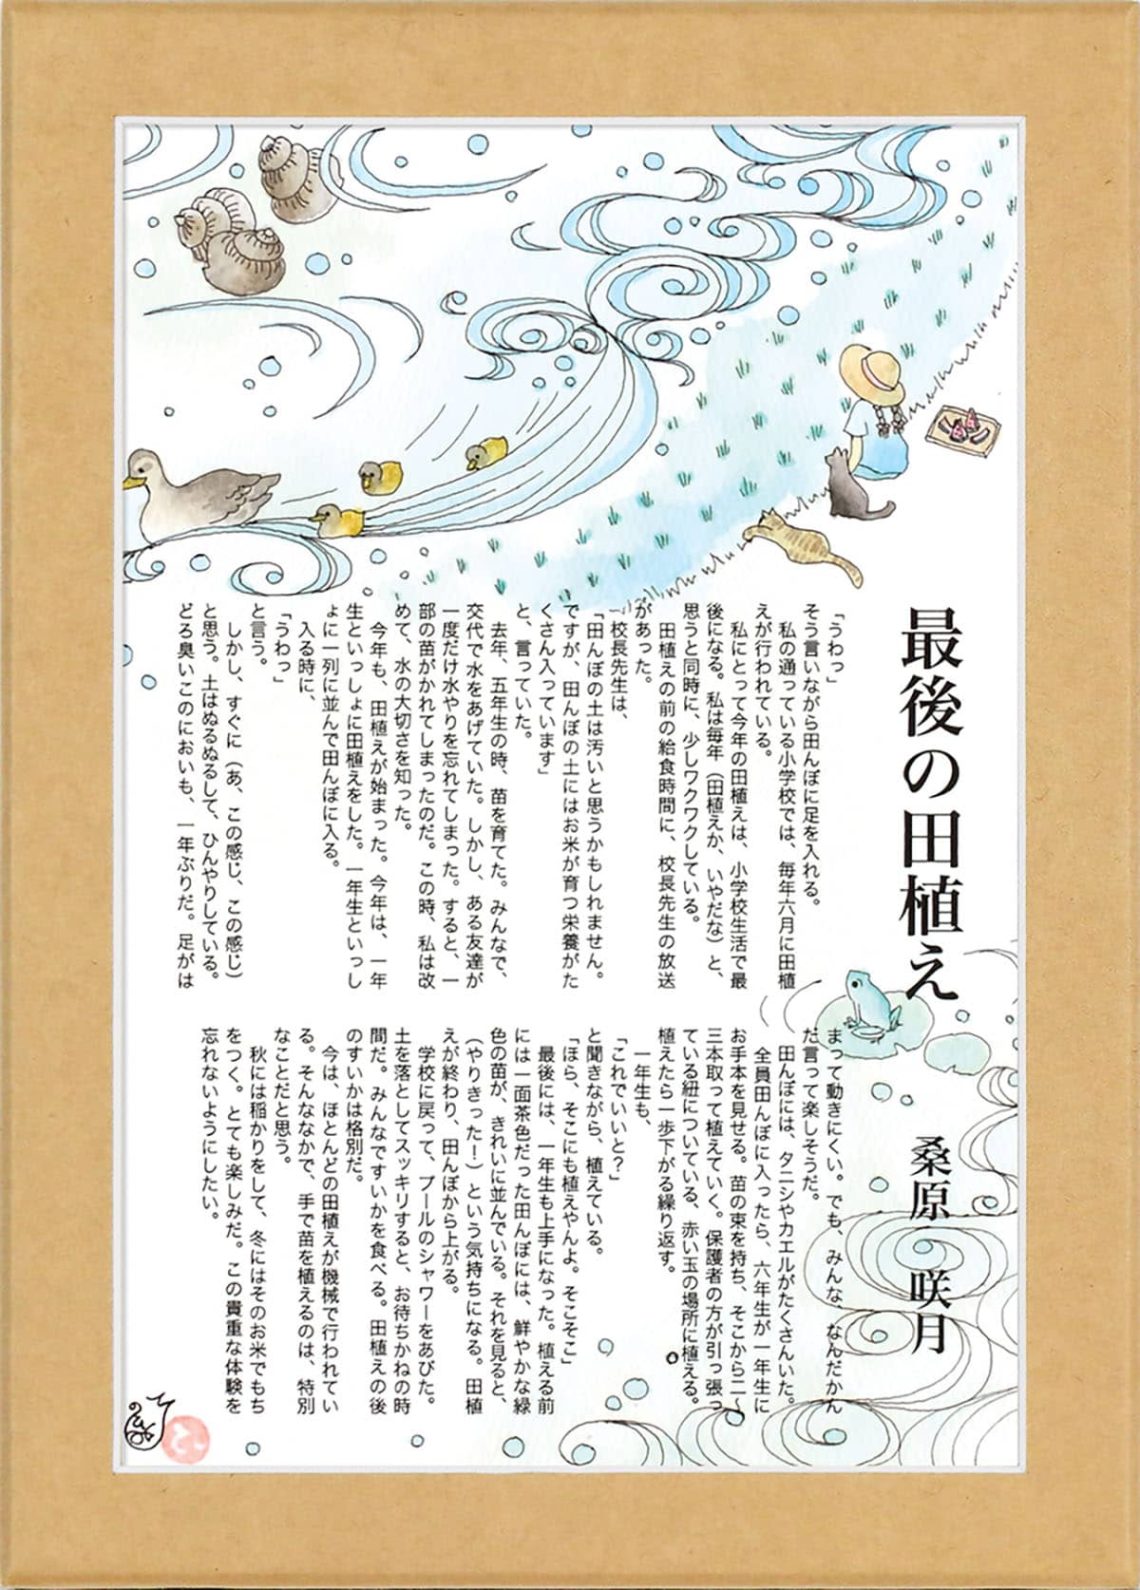 最後の田植え
桑原 咲月
「うわっ」
そう言いながら田んぼに足を入れる。
私の通っている小学校では、毎年六月に田植
えが行われている。
私にとって今年の田植えは、小学校生活で最
後になる。私は毎年（田植えか、いやだな）と、
思うと同時に、少しワクワクしている。
田植えの前の給食時間に、校長先生の放送
があった。
校長先生は、
「田んぼの土は汚いと思うかもしれません。
ですが、田んぼの土にはお米が育つ栄養がた
くさん入っています」
と、言っていた。
去年、五年生の時、苗を育てた。みんなで、
交代で水をあげていた。しかし、ある友達が
一度だけ水やりを忘れてしまった。すると、一
部の苗がかれてしまったのだ。この時、私は改
めて、水の大切さを知った。
今年も、田植えが始まった。今年は、一年
生といっしょに田植えをした。一年生といっし
ょに一列に並んで田んぼに入る。
入る時に、
「うわっ」
と言う。
しかし、すぐに（あ、この感じ、この感じ）
と思う。土はぬるぬるして、ひんやりしている。
どろ臭いこのにおいも、一年ぶりだ。足がは
まって動きにくい。でも、みんな、なんだかん
だ言って楽しそうだ。
田んぼには、タニシやカエルがたくさんいた。
全員田んぼに入ったら、六年生が一年生に
お手本を見せる。苗の束を持ち、そこから二～
三本取って植えていく。保護者の方が引っ張っ
ている紐についている、赤い玉の場所に植える。
植えたら一歩下がる繰り返す。
一年生も、
「これでいいと？」
と聞きながら、植えている。
「ほら、そこにも植えやんよ。そこそこ」
最後には、一年生も上手になった。植える前
には一面茶色だった田んぼには、鮮やかな緑
色の苗が、きれいに並んでいる。それを見ると、
（やりきった！）という気持ちになる。田植
えが終わり、田んぼから上がる。
学校に戻って、プールのシャワーをあびた。
土を落としてスッキリすると、お待ちかねの時
間だ。みんなですいかを食べる。田植えの後
のすいかは格別だ。
今は、ほとんどの田植えが機械で行われてい
る。そんななかで、手で苗を植えるのは、特別
なことだと思う。
秋には稲かりをして、冬にはそのお米でもち
をつく。とても楽しみだ。この貴重な体験を
忘れないようにしたい。